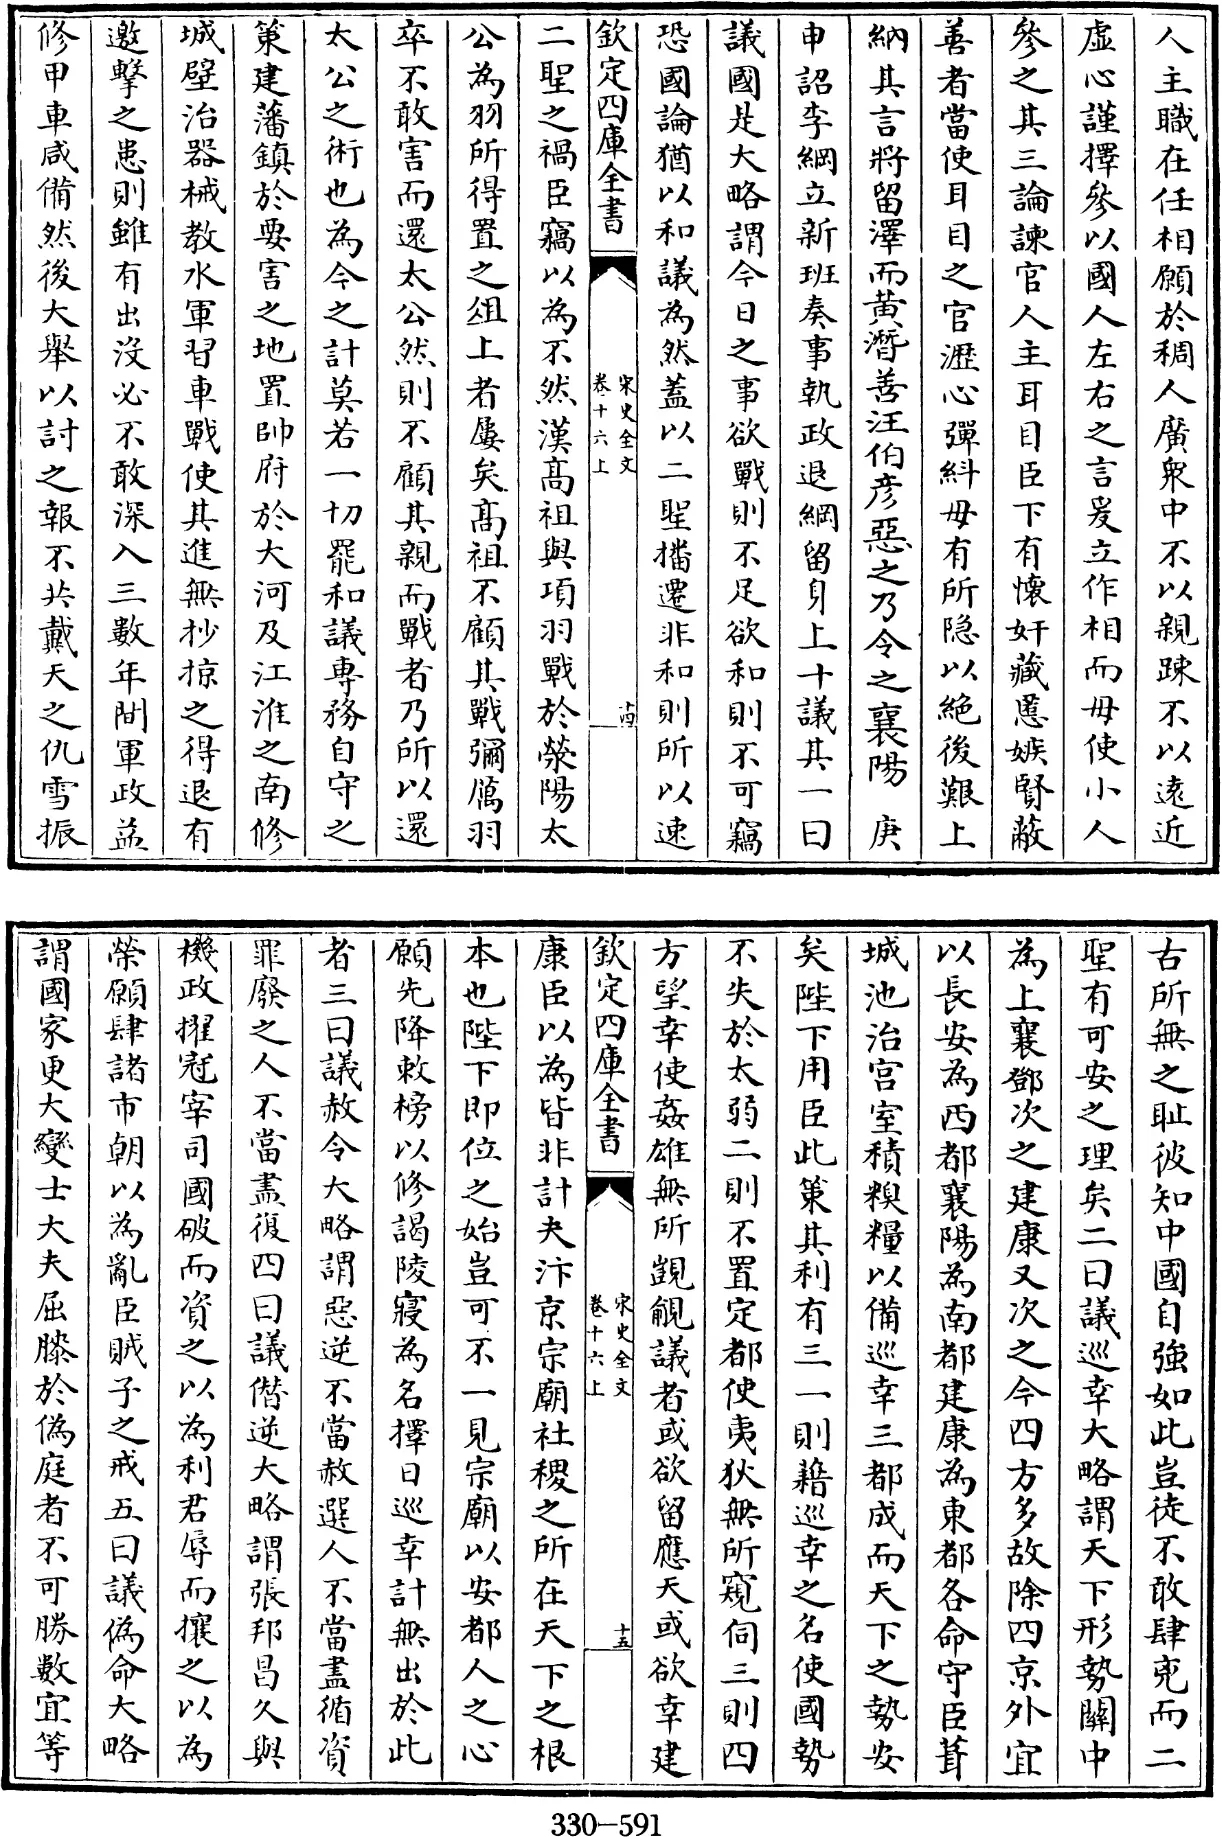 人主職在任相願於稠人廣衆中不以親踈不以逺近
虛心謹擇參以國人左右之言爰立作相而毋使小人
參之其三論諫官人主耳目臣下有懷奸藏慝嫉賢蔽
善者當使耳目之官瀝心彈糾毋有所隠以絶後艱上
納其言將留澤而黄潛善汪伯彦惡之乃令之襄陽 庚
申詔李綱立新班奏事執政退綱留身上十議其一曰
議國是大略謂今日之事欲戰則不足欲和則不可竊
恐國論猶以和議為然蓋以二聖播遷非和則所以速
欽定四庫全書
宋史全文
卷十六上
十四
二聖之禍臣竊以為不然漢髙祖與項羽戰於滎陽太
公為羽所得置之俎上者屢矣髙祖不顧其戰彌厲羽
卒不敢害而還太公然則不顧其親而戰者乃所以還
太公之術也為今之計莫若一切罷和議専務自守之
策建藩鎮於要害之地置帥府於大河及江淮之南修
城壁治器械教水軍習車戰使其進無抄掠之得退有
邀擊之患則雖有出没必不敢深入三數年間軍政益
修甲車咸備然後大舉以討之報不共戴天之仇雪振
古所無之恥彼知中國自強如此豈徒不敢肆兇而二
聖有可安之理矣二曰議巡幸大略謂天下形勢關中
為上襄鄧次之建康又次之今四方多故除四京外宜
以長安為西都襄陽為南都建康為東都各命守臣葺
城池治宫室積糗糧以備巡幸三都成而天下之勢安
矣陛下用臣此策其利有三一則藉巡幸之名使國勢
不失於太弱二則不置定都使夷狄無所窺伺三則四
方望幸使姦雄無所覬覦議者或欲留應天或欲幸建
欽定四庫全書
宋史全文
卷十六上
十五
康臣以為皆非計夫汴京宗廟社稷之所在天下之根
本也陛下即位之始豈可不一見宗廟以安都人之心
願先降敕榜以修謁陵寢為名擇日巡幸計無出於此
者三曰議赦令大略謂惡逆不當赦選人不當盡循資
罪廢之人不當盡復四曰議僭逆大略謂張邦昌久與
機政擢冠宰司國破而資之以為利君辱而攘之以為
榮願肆諸市朝以為亂臣賊子之戒五曰議偽命大略
謂國家更大變士大夫屈膝於偽庭者不可勝數宜等
330-591